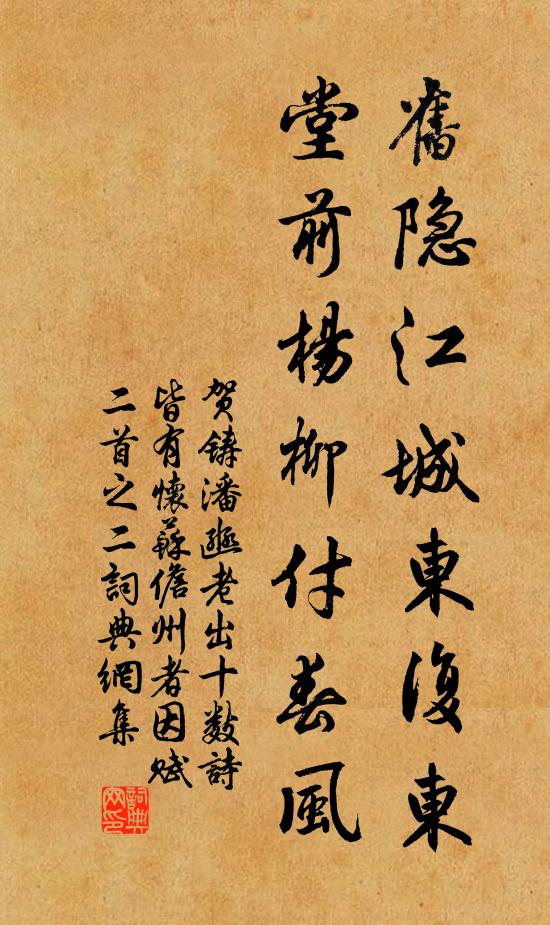 舊隐江城東復東
堂前楊柳付春風
贺鑄潘邈老出十數詩
皆有懷蘇儋州者因赋
二首之二詞典網集
詞典网印